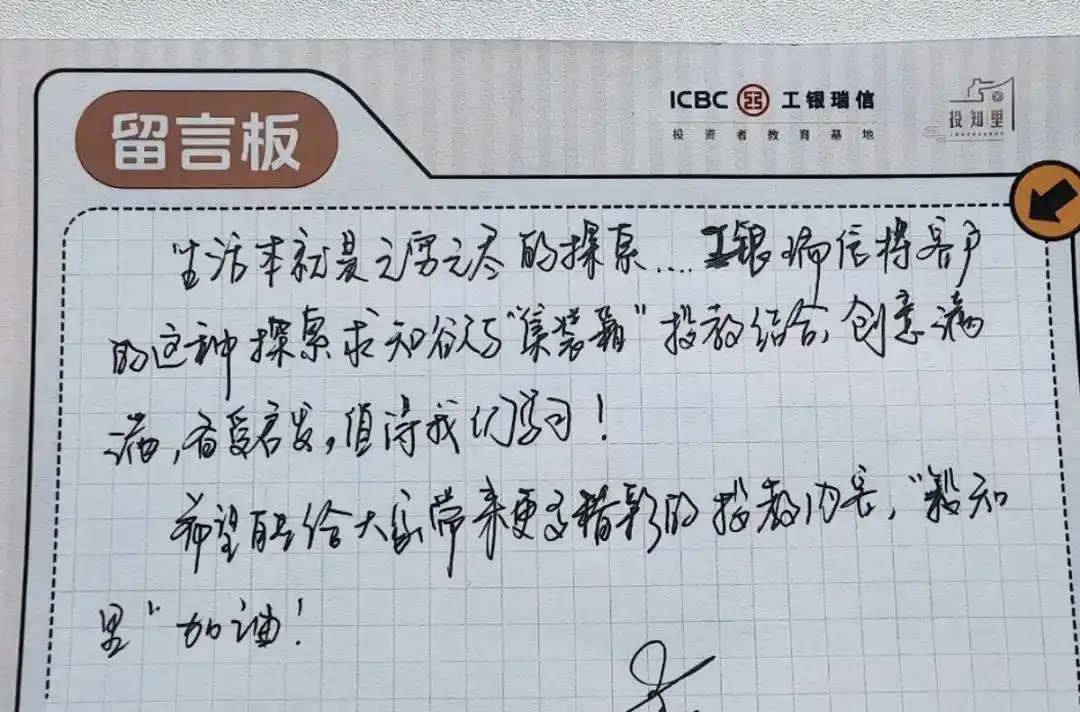 留言板
ICBC 工银瑞信
投资者教育基地
投知里
生活本就是无穷无尽的探索....工银瑞信将客户
的这种探索求知欲与“集装箱”投教结合,创意满
满,备受启发,值得我们学习!
希望能给大家带来更多精彩的投教内容,“投知
里”加油!